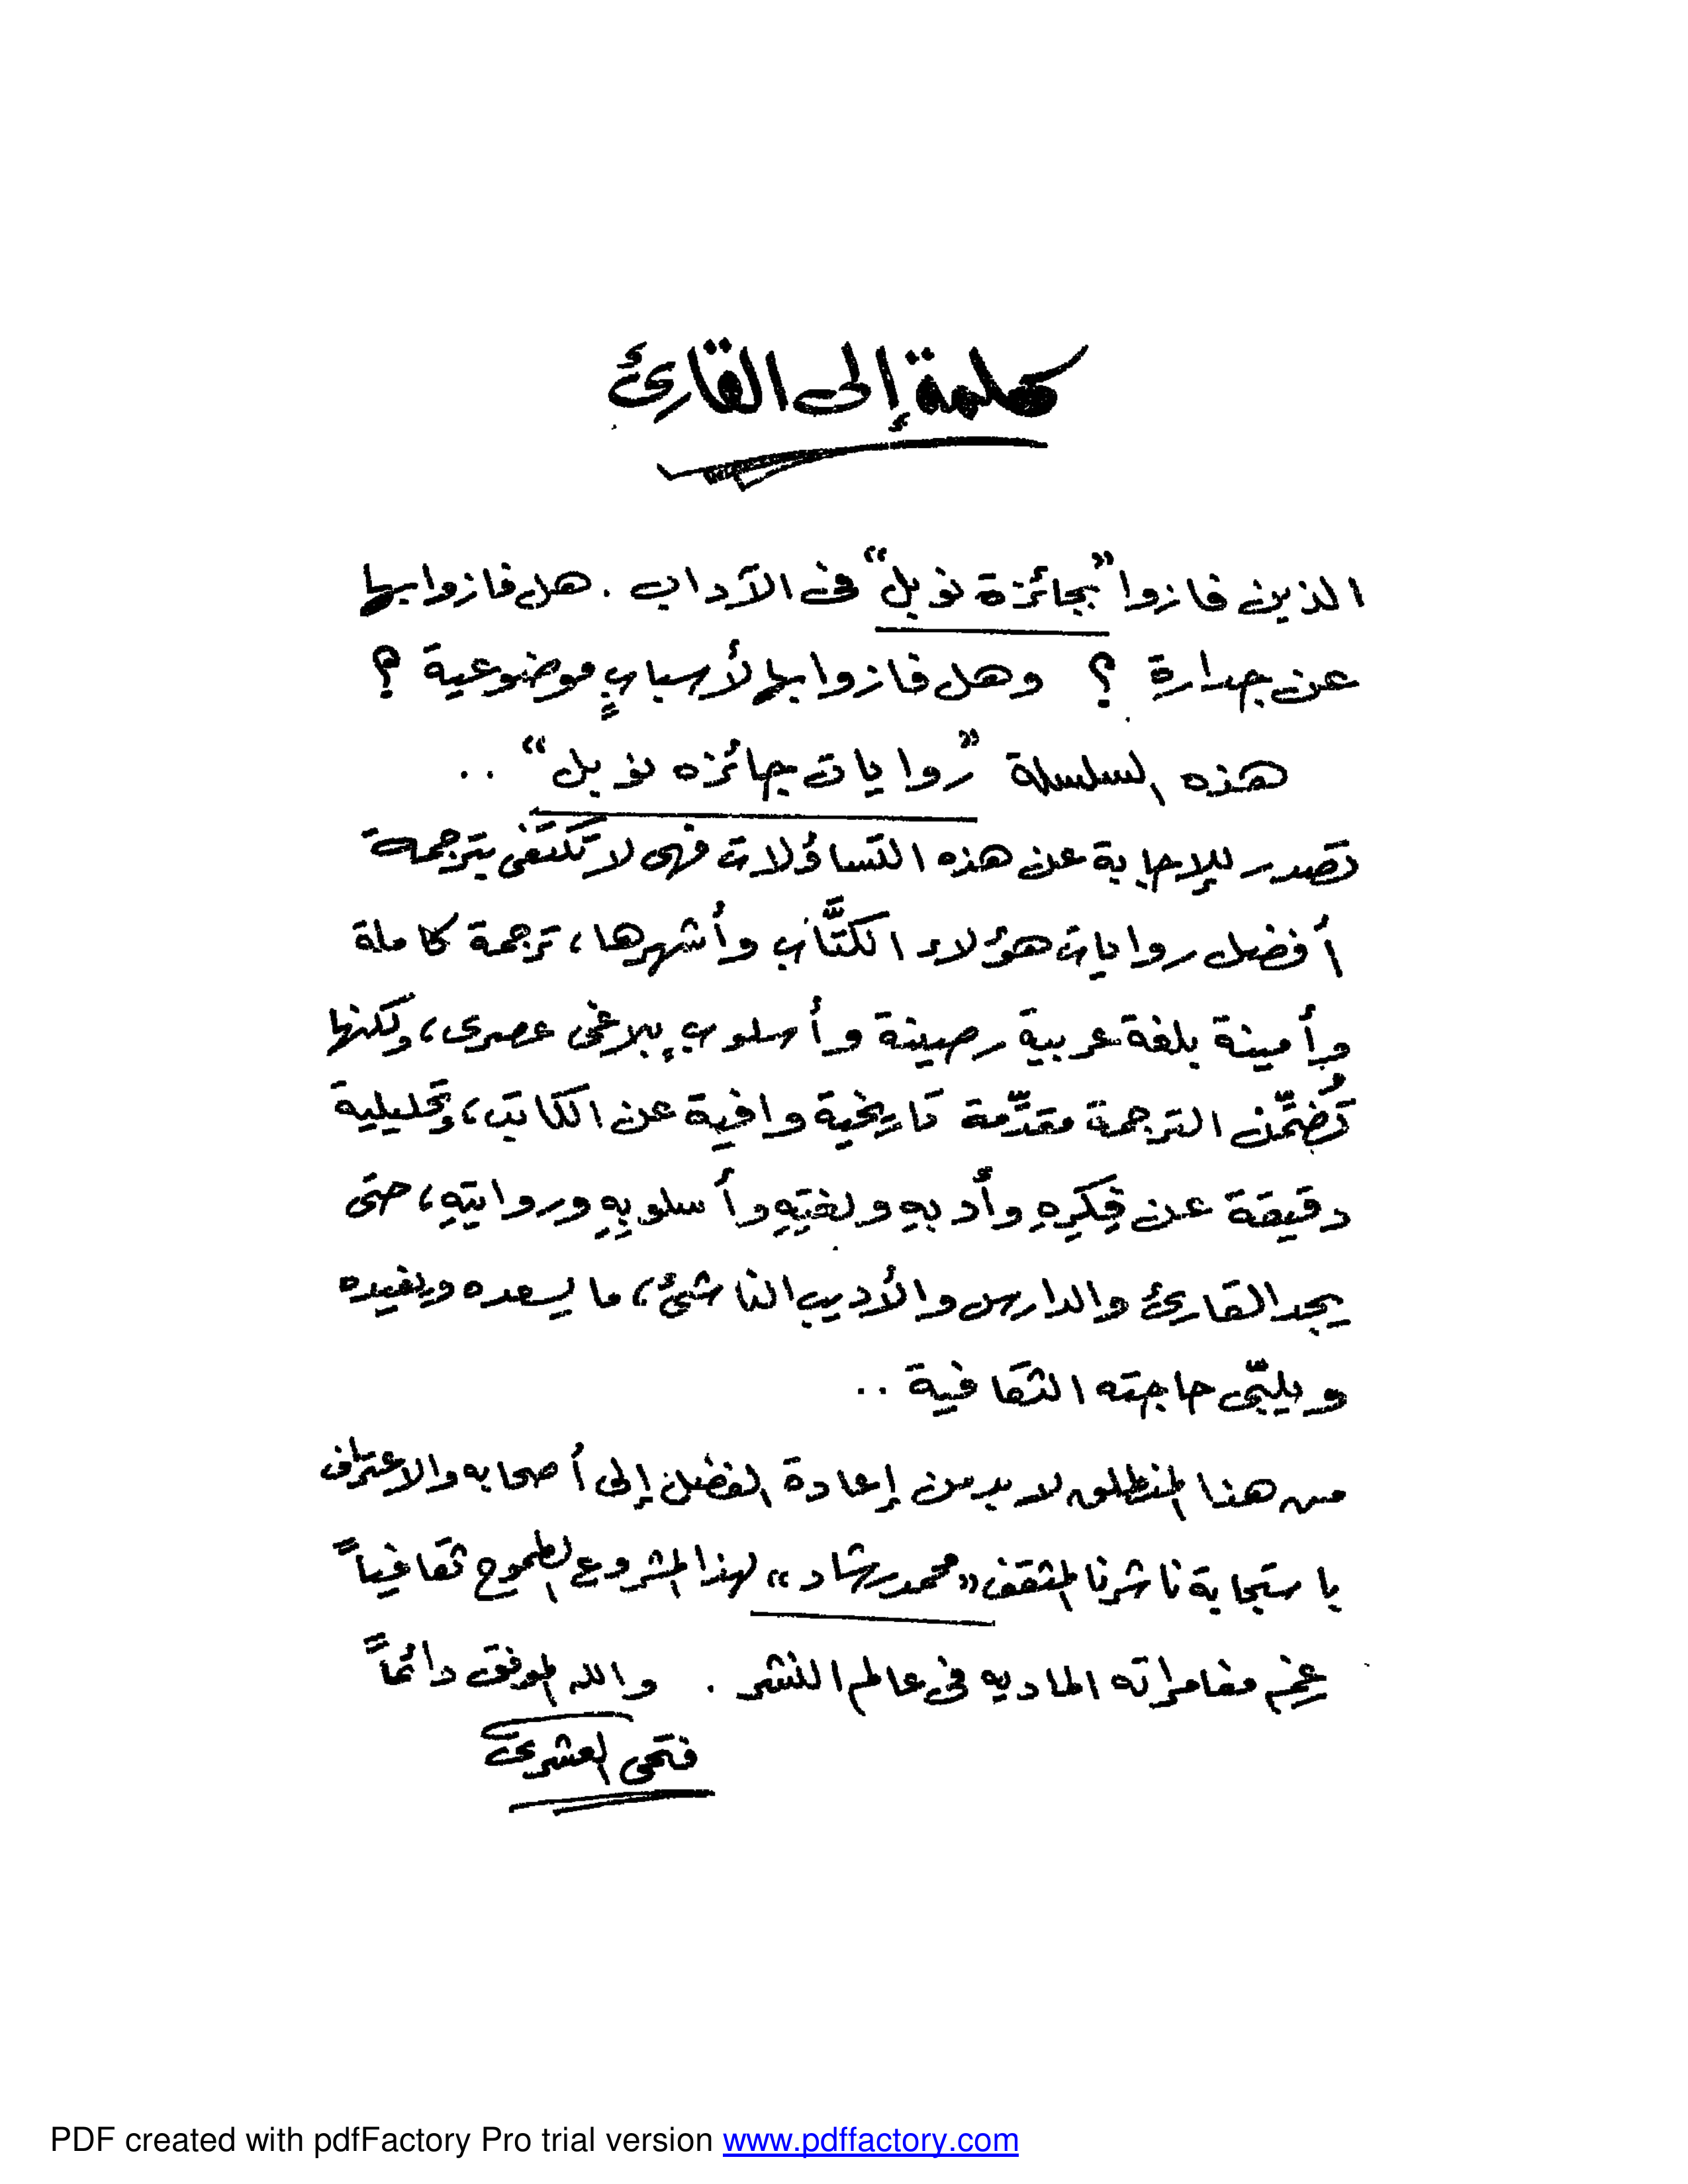 كلمة إلى القارئ
الذين فازوا "بجائزة نوبل" فى الآداب . هل فازوا بها
عن جدارة ؟ وهل فازوا بها لأسبابٍ موضوعية ؟
هذه السلسلة "روايات جائزه نوبل" ..
تصدر للإجابة عن هذه التساؤلات فهى لا تكتفى بترجمة
أفضل روايات هؤلاء الكتَّاب وأشهرها، ترجمة كاملة
وأمينة بلغة عربية رصينة وأسلوبٍ بلاغى عصرى، ولكنها
تُضمِّن الترجمة مقدِّمة تاريخية وافية عن الكاتب، وتحليلية
دقيقة عن فِكرِهِ وأدبِهِ ولغتِهِ وأسلوبِهِ وروايتِهِ، حتى
يجد القارئ والدارس والأديب الناشئ، ما يسعده ويفيده
ويلبّى حاجته الثقافية ..
من هذا المنطلق لابد من إعادة الفضل إلى أصحابه والاعتراف
باستجابة ناشرنا المثقف «محمد رشاد» لهذا المشروع الطموح ثقافياً
مغامراته الماديه فى عالم النشر . والله الموفق دائماً
فتحى العشرى
PDF created with pdfFactory Pro trial version www.pdffactory.com